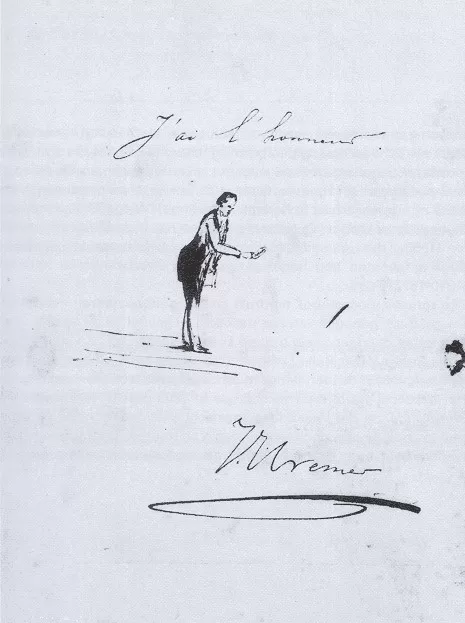 J'ai l'honneur.
J.J. Cremer